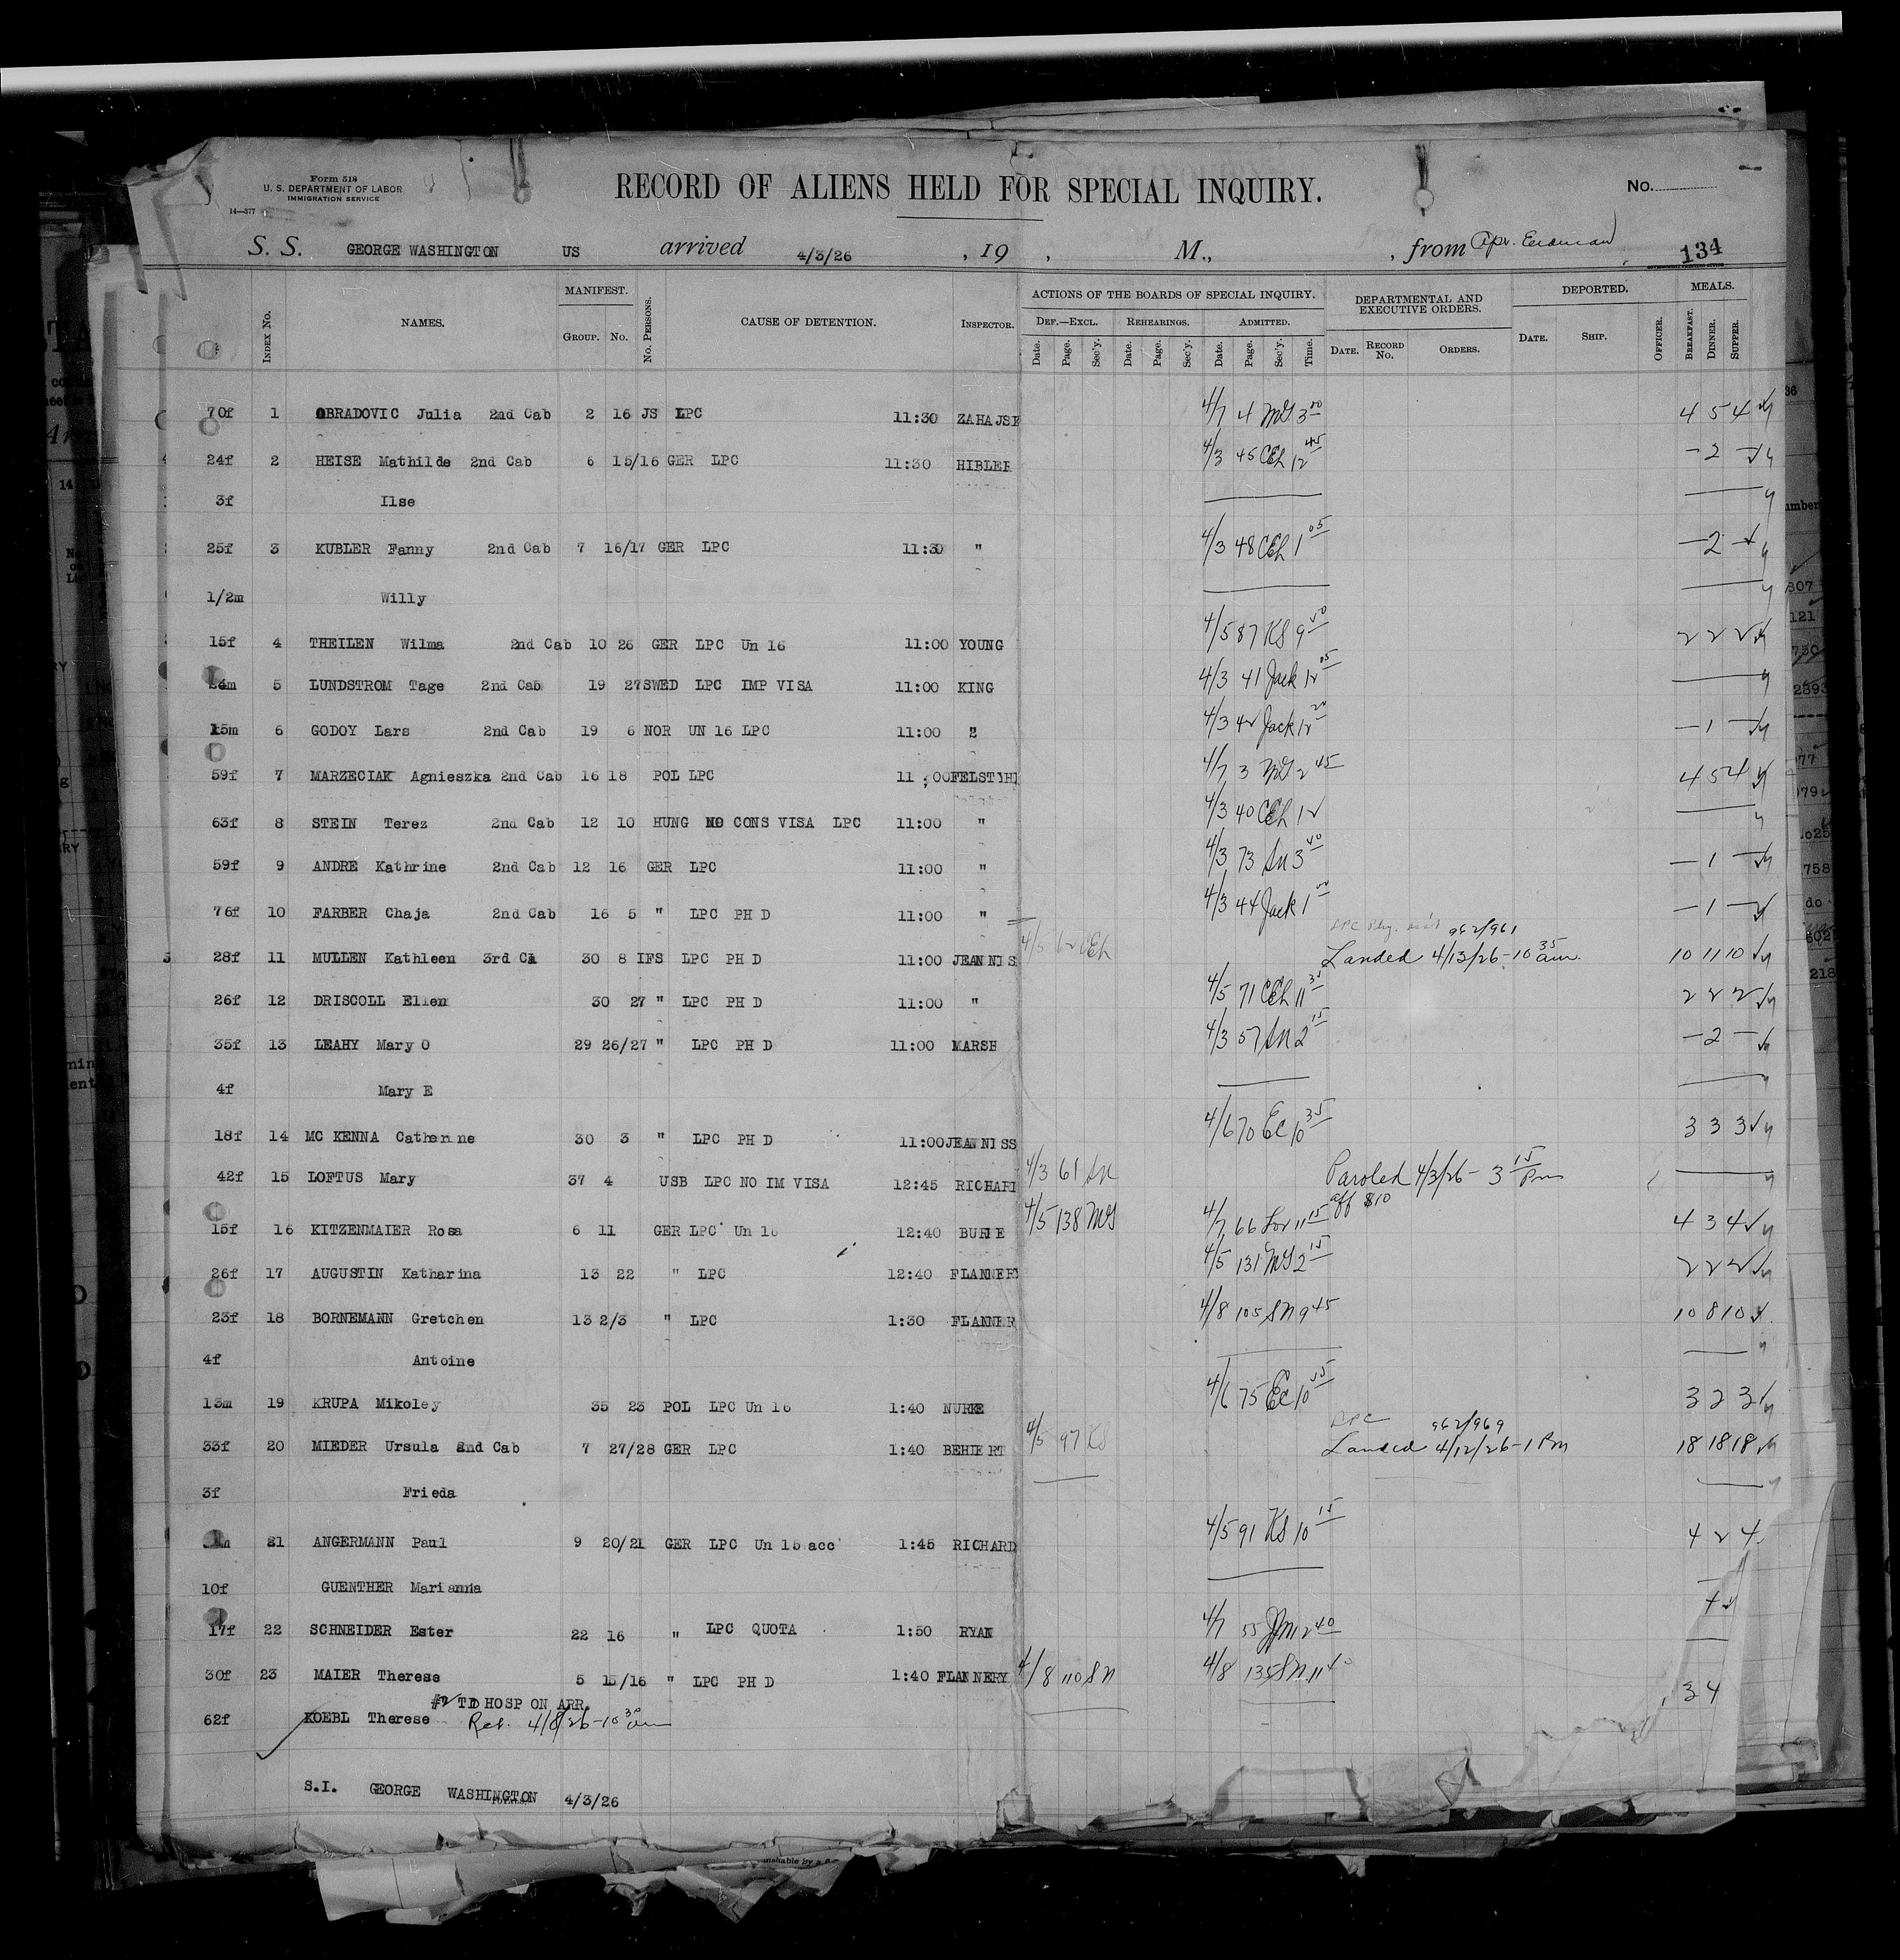 Form 518
U. S. DEPARTMENT OF LABOR
IMMIGRATION SERVICE
14—377
RECORD OF ALIENS HELD FOR SPECIAL INQUIRY.
No.
S. S. GEORGE WASHINGTON US arrived 4/3/26 , 19 , M., , from
134
INDEX No. NAMES. MANIFEST. GROUP. No. No. PERSONS. CAUSE OF DETENTION. INSPECTOR.
ACTIONS OF THE BOARDS OF SPECIAL INQUIRY. DEF.—EXCL. REHEARINGS. ADMITTED.
Date. Page. Sec'y. Date. Page. Sec'y. Date. Page. Sec'y. Time.
DEPARTMENTAL AND EXECUTIVE ORDERS. DATE. RECORD No. ORDERS.
DEPORTED. DATE. SHIP. OFFICER. MEALS. BREAKFAST. DINNER. SUPPER.
70f 1 OBRADOVIC Julia 2nd Cab 2 16 JS LPC 11:30 ZAHAJSK 4/7 4 MG 3 00 4 5 4
24f 2 HEISE Mathilde 2nd Cab 6 15/16 GER LPC 11:30 HIBLER 4/3 45 CEh 12 45 — 2 —
3f Ilse
25f 3 KUBLER Fanny 2nd Cab 7 16/17 GER LPC 11:30 " 4/3 48 CEh 1 05 — 2 —
1/2m Willy
15f 4 THEILEN Wilma 2nd Cab 10 26 GER LPC Un 16 11:00 YOUNG 4/5 87 KS 9 50 2 2 2
24m 5 LUNDSTROM Tage 2nd Cab 19 27 SWED LPC IMP VISA 11:00 KING 4/3 41 Jack 12 05
15m 6 GODOY Lars 2nd Cab 19 6 NOR UN 16 LPC 11:00 " 4/3 42 Jack 12 20 — 1 —
59f 7 MARZECIAK Agnieszka 2nd Cab 16 18 POL LPC 11:00 FELSTYHI 4/7 3 MG 2 45 4 5 4
63f 8 STEIN Terez 2nd Cab 12 10 HUNG NO CONS VISA LPC 11:00 " 4/3 40 CEh 12
59f 9 ANDRE Kathrine 2nd Cab 12 16 GER LPC 11:00 " 4/3 73 Sn 3 40 — 1 —
76f 10 FARBER Chaja 2nd Cab 16 5 " LPC PH D 11:00 " 4/3 44 Jack 1 00 — 1 —
962/961
28f 11 MULLEN Kathleen 3rd Ca 30 8 IFS LPC PH D 11:00 JEANNIS 4/5 62 CEh Landed 4/13/26-10 35 am. 10 11 10
26f 12 DRISCOLL Ellen 30 27 " LPC PH D 11:00 " 4/5 71 CEh 11 35 2 2 2
35f 13 LEAHY Mary O 29 26/27 " LPC PH D 11:00 MARSH 4/3 57 Sn 2 15 — 2 —
4f Mary E
18f 14 MC KENNA Catherine 30 3 " LPC PH D 11:00 JEANNISS 4/6 70 Ec 10 35 3 3 3
42f 15 LOFTUS Mary 37 4 USB LPC NO IM VISA 12:45 RICHARI 4/3 61 Sn Paroled 4/3/26 - 3 15 Pm
aff $10
15f 16 KITZENMAIER Rosa 6 11 GER LPC Un 16 12:40 BURIE 4/5 138 MG 4/7 66 11 15 4 3 4
26f 17 AUGUSTIN Katharina 13 22 " LPC 12:40 FLANNERY 4/5 131 MG 2 15 2 2 2
23f 18 BORNEMANN Gretchen 13 2/3 " LPC 1:30 FLANNER 4/8 105 SN 9 45 10 8 10
4f Antoine
13m 19 KRUPA Mikoley 35 23 POL LPC Un 16 1:40 NURKE 4/6 75 Ec 10 55 3 2 3
962/969
33f 20 MIEDER Ursula 2nd Cab 7 27/28 GER LPC 1:40 BEHIERT 4/5 97 KS Landed 4/12/26-1 Pm 18 18 18
3f Frieda
21 ANGERMANN Paul 9 20/21 GER LPC Un 15 acc 1:45 RICHARD 4/5 91 KS 10 15 4 2 4
10f GUENTHER Marianna
17f 22 SCHNEIDER Ester 22 16 " LPC QUOTA 1:50 RYAN 4/7 55 12 40
30f 23 MAIER Therese 5 15/16 " LPC PH D 1:40 FLANNERY 4/8 110 SN 4/8 135 SN 11 40 3 4
#2 TD HOSP ON ARR.
62f KOEBL Therese Rel. 4/8/26-10 30 am
S.I. GEORGE WASHINGTON 4/3/26